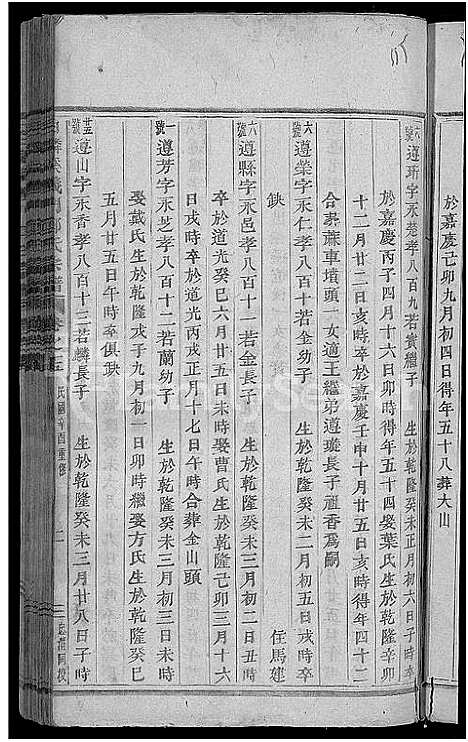 於嘉慶己卯九月初四日得年五十八葬大山
六號 遵珩字永苑孝八百九若黃繼子 生於乾隆癸未正月初六日子時卒
於嘉慶丙子四月十六日卯時得年五十四娶葉氏生於乾隆辛卯
十二月廿二日亥時卒於嘉慶壬申十月廿五日亥時得年四十二
合葬蔴車墳頭一女適王繼弟遵璇長子禮香爲嗣
六號 遵榮字永仁孝八百十若金幼子 生於乾隆癸未二月初五日戌時卒
缺 任馬建
六號 遵縣字永邑孝八百十一若金長子 生於乾隆癸未三月初二日丑時
卒於道光癸巳六月廿五日未時娶曹氏生於乾隆己卯三月十六
日戌時卒於道光丙戌正月十七日午時合葬金山頭
一號 遵芳字永芝孝八百十二若蘭幼子 生於乾隆癸未三月初三日未時
娶戴氏生於乾隆戊子九月初一日卯時繼娶方氏生於乾隆癸巳
五月廿五日午時卒俱缺
廿五號 遵山字永香孝八百十三若麟長子 生於乾隆癸未三月廿八日子時
氏宗譜
卷之三
民國辛酉重修
二